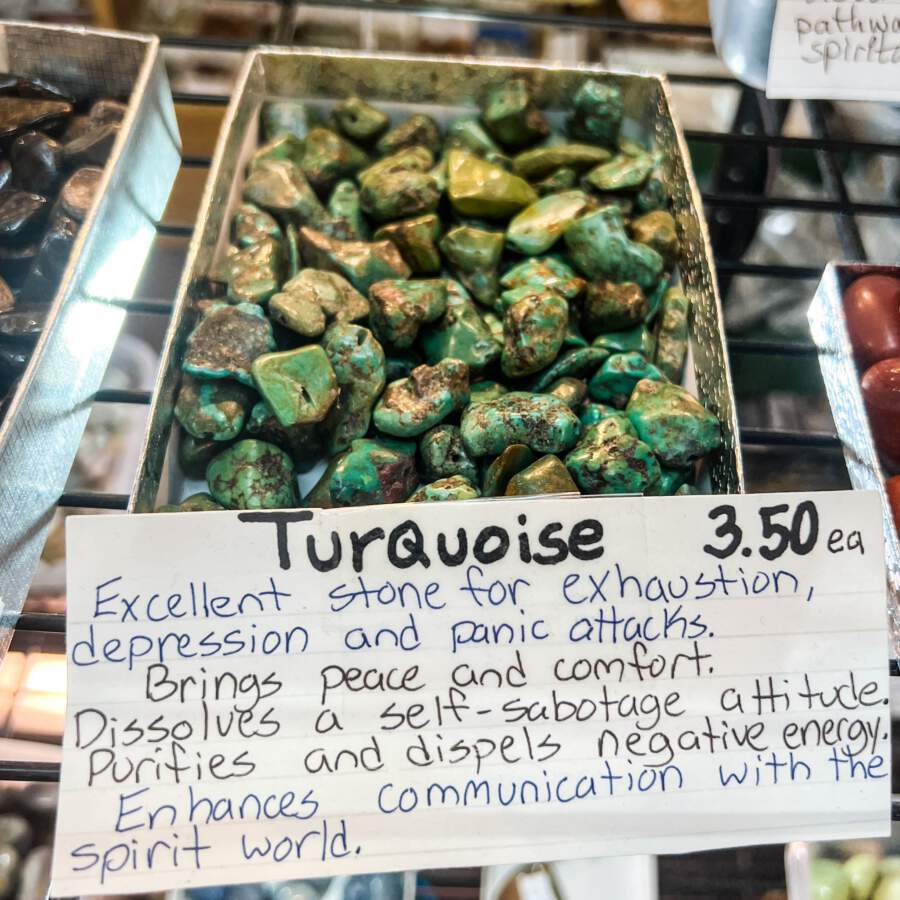 pathwa
spirit
Turquoise 3.50 ea
Excellent stone for exhaustion,
depression and panic attacks.
Brings peace and comfort.
Dissolves a self-sabotage attitude.
Purifies and dispels negative energy.
Enhances communication with the
spirit world.